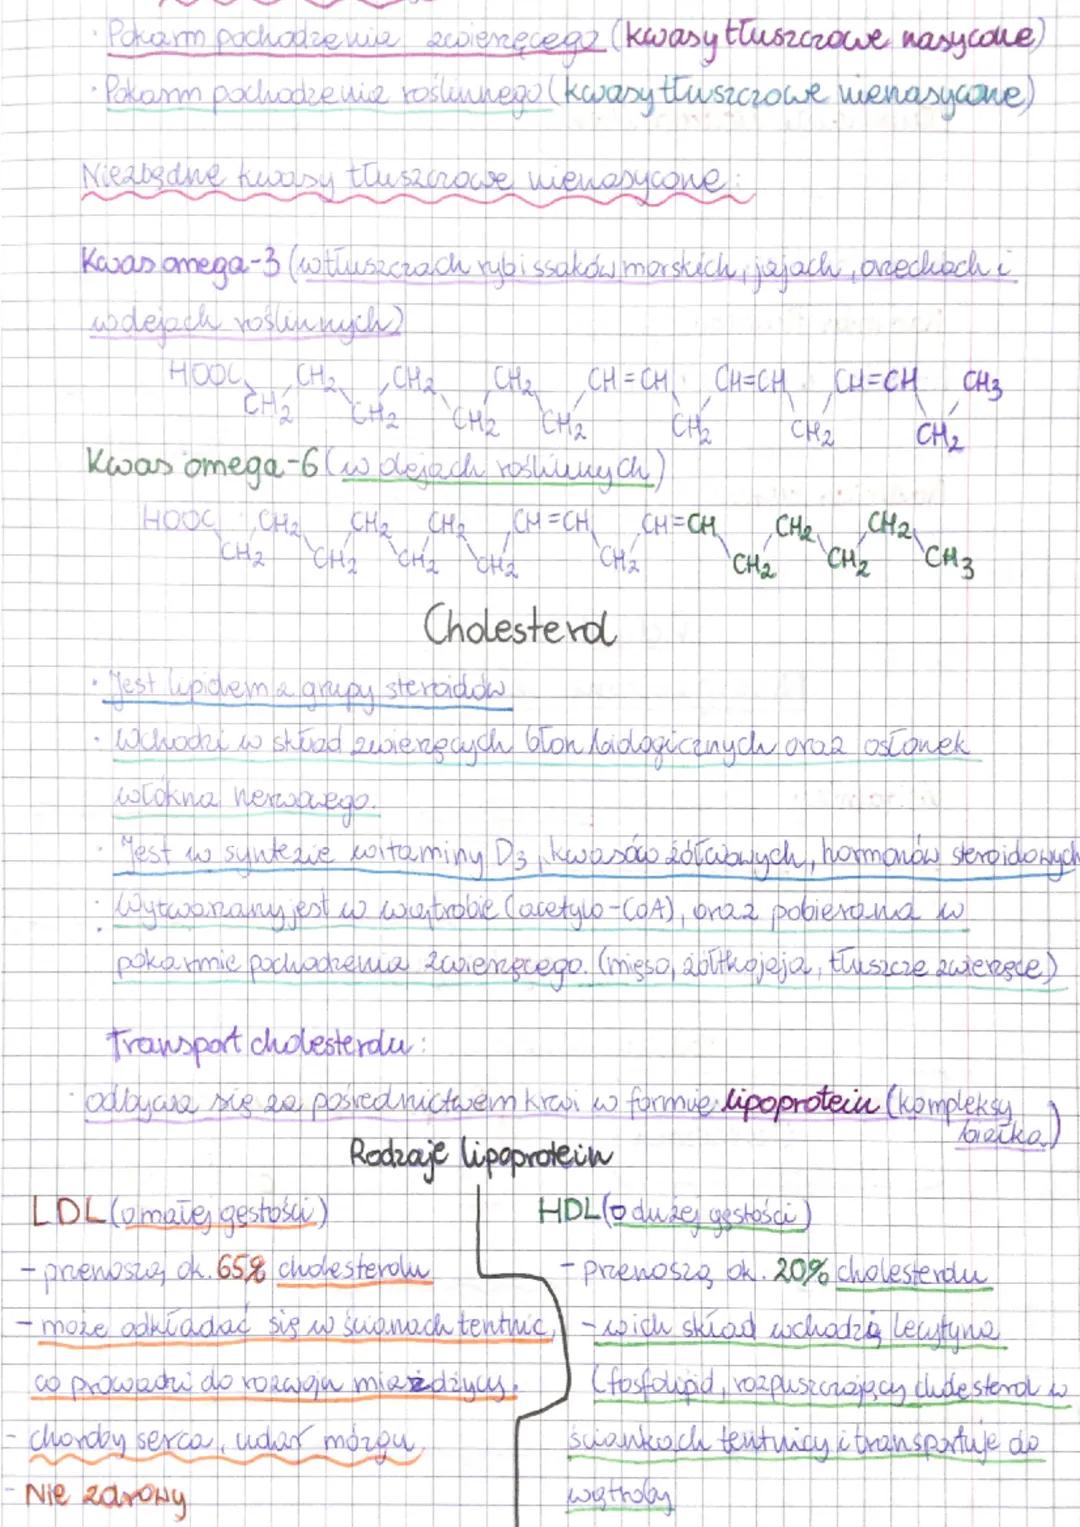 · Pokarm pochodzenia zwierzęcego (kwasy tłuszczowe nasycone)
· Pokarm pochodzenia roślinnego (kwasy tłuszczowe nienasycone)
Niezbędne kwasy tłuszczowe nienasycone:
Kwas omega-3 (w tłuszczach ryb i ssaków morskich, jajach, orzechach i
w olejach roślinnych)
HOOC CH2 CH2 CH2 CH=CH CH=CH CH=CH CH3
CH2 CH2 CH2 CH2 CH2 CH2 CH2
Kwas omega-6 (w olejach roślinnych)
HOOC CH2 CH2 CH2 CH=CH CH=CH CH2 CH2
CH2 CH2 CH2 CH2 CH2 CH2 CH2 CH3
Cholesterol
· Jest lipidem z grupy steroidów
· Wchodzi w skład zwierzęcych błon biologicznych oraz osłonek
włókna nerwowego.
· Jest w syntezie witaminy D3, kwasów żółciowych, hormonów steroidowych
· Wytwarzany jest w wątrobie (acetylo-CoA), oraz pobierana w
pokarmie pochodzenia zwierzęcego. (mięso, żółtko jaja, tłuszcze zwierzęce)
Transport cholesterolu:
· odbywa się za pośrednictwem krwi w formie lipoprotein (kompleksy
białka)
Rodzaje lipoprotein
LDL (o małej gęstości)
- przenoszą ok. 65% cholesterolu
- może odkładać się w ścianach tentnic,
co prowadzi do rozwoju miażdżycy,
- chordby serca, udar mózgu
- Nie zdrowy
HDL (o dużej gęstości)
- przenoszą ok. 20% cholesterolu
- w ich skład wchodzą lecytyna
(fosfolipid, rozpuszczający cholesterol w
ściankach tentnicy i transportuje do
wątroby